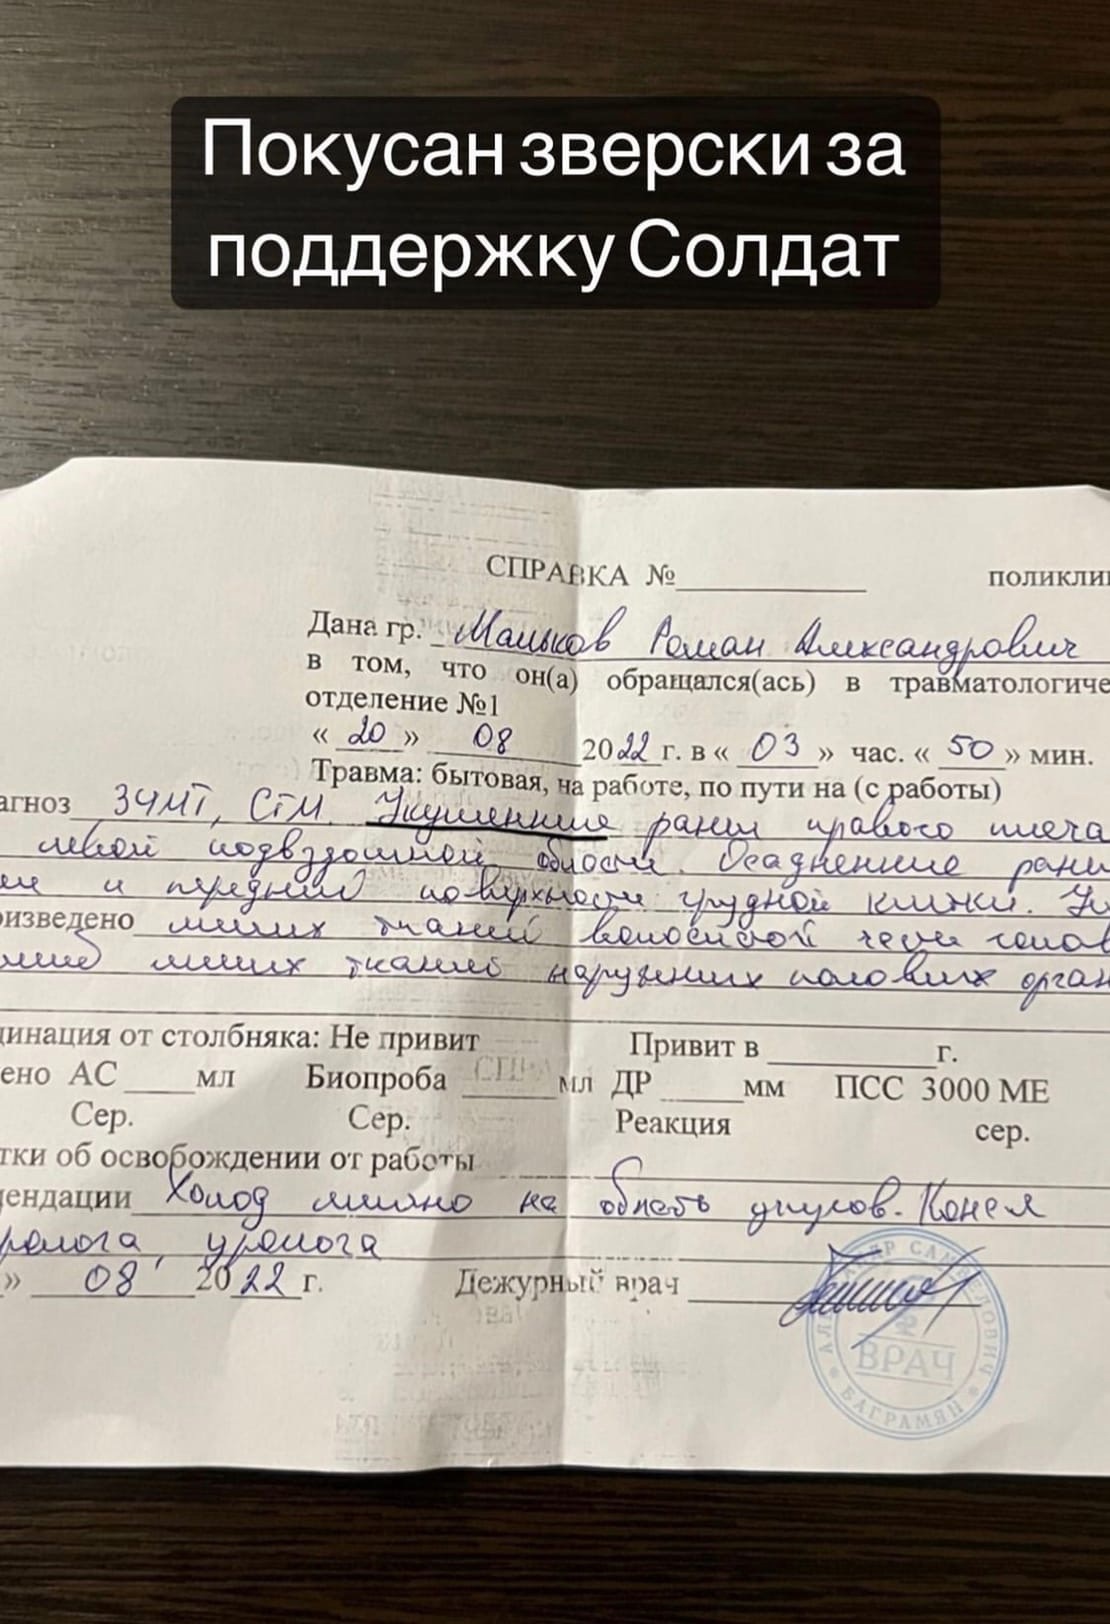 Покусан зверски за
поддержку Солдат
СПРАВКА №
поликли
Дана гр. Маньков Роман Александрович
в том, что он(а) обращался(ась) в травматологиче
отделение №1
« 20 » 08 2022 г. в « 03 » час. « 50 » мин.
Травма: бытовая, на работе, по пути на (с работы)
агноз ЗЧМТ, СГМ. Укушенные раны правого плеча
левой подвздошной области. Осадненные раны
и передней поверхности грудной клетки. Уш
оизведено мягких тканей волосистой части голов
мягких тканей наружных половых орган
цинация от столбняка: Не привит Привит в г.
ено АС мл Биопроба мл ДР мм ПСС 3000 МЕ
Сер. Сер. Реакция сер.
тки об освобождении от работы
ендации Холод местно на область ушибов. Конс-я
ролога, уролога
» 08 2022 г. Дежурный врач
ВРАЧ
БАГРАМЯН